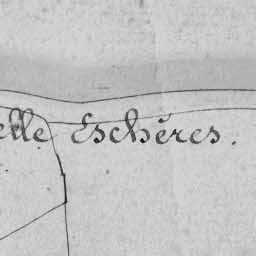 elle Eschères.